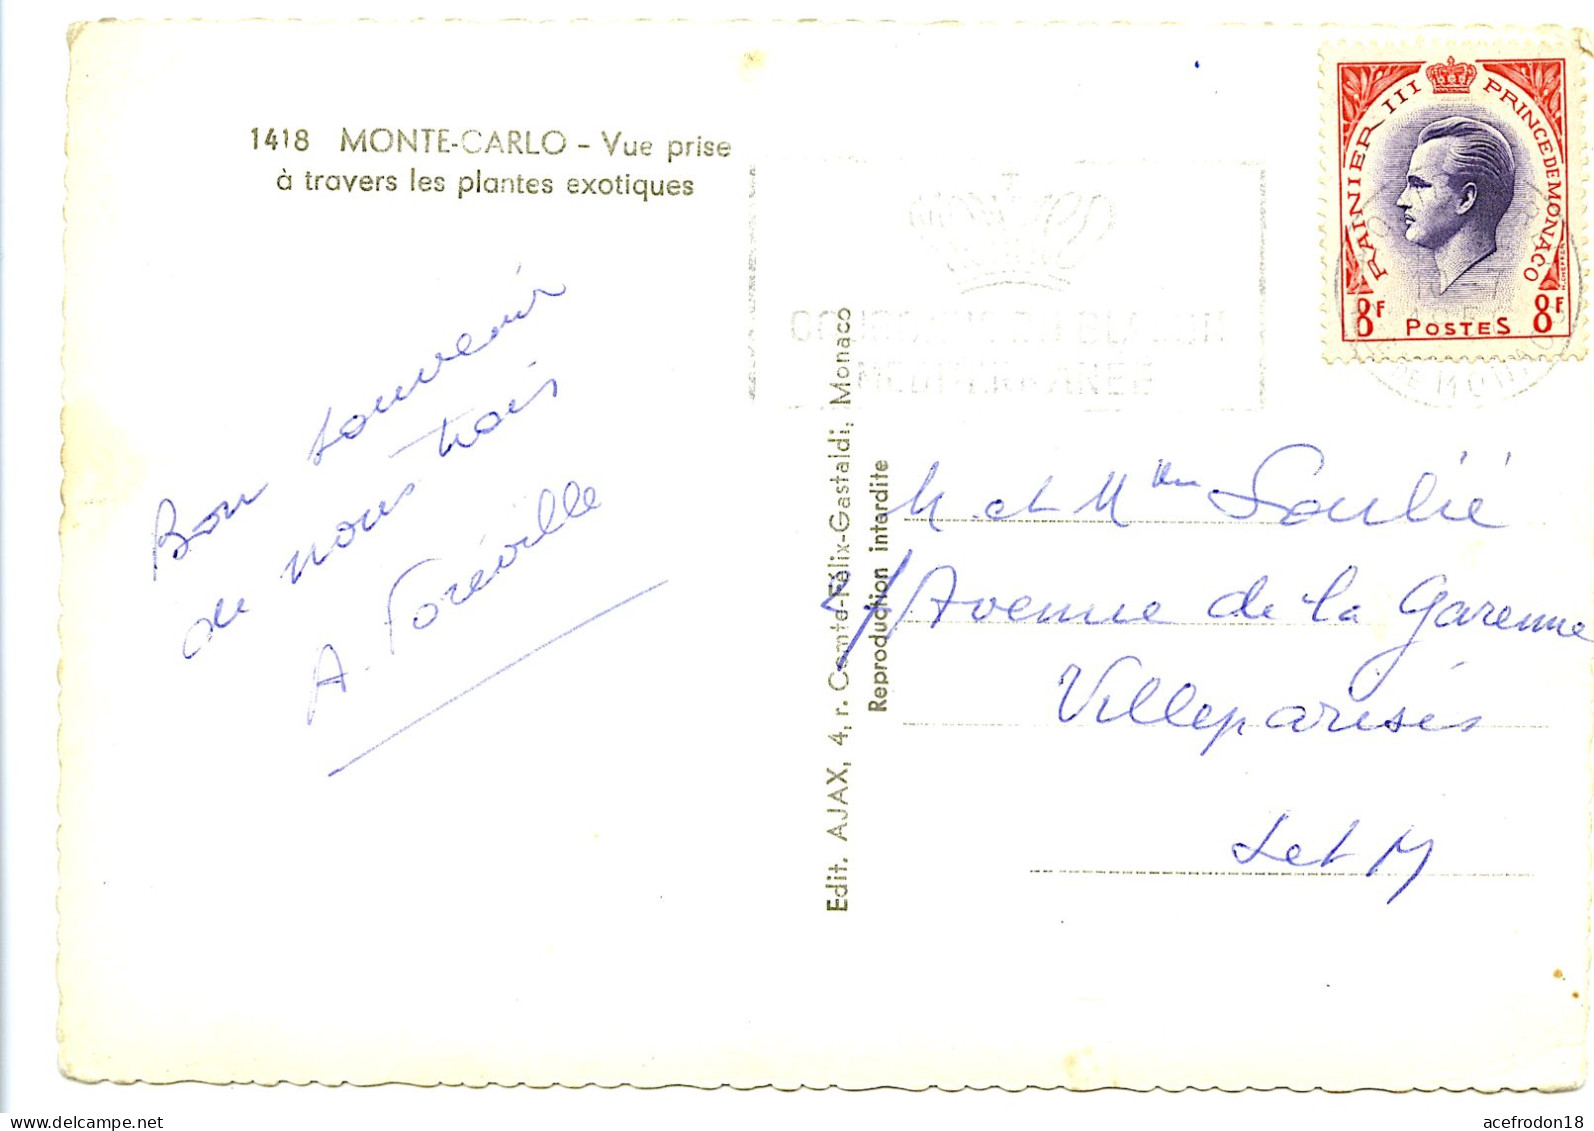 1418 MONTE-CARLO - Vue prise
à travers les plantes exotiques
Bon souvenir
de nous trois
A. Foréville
Edit. AJAX, 4, r. Comte-Félix-Gastaldi, Monaco
Reproduction interdite
RAINIER III PRINCE DE MONACO
8F POSTES 8F
MEDITERRANEE
MONACO
M. et Mme Soulié
Avenue de la Garenne
Villeparisis
S et M
acefrodon18